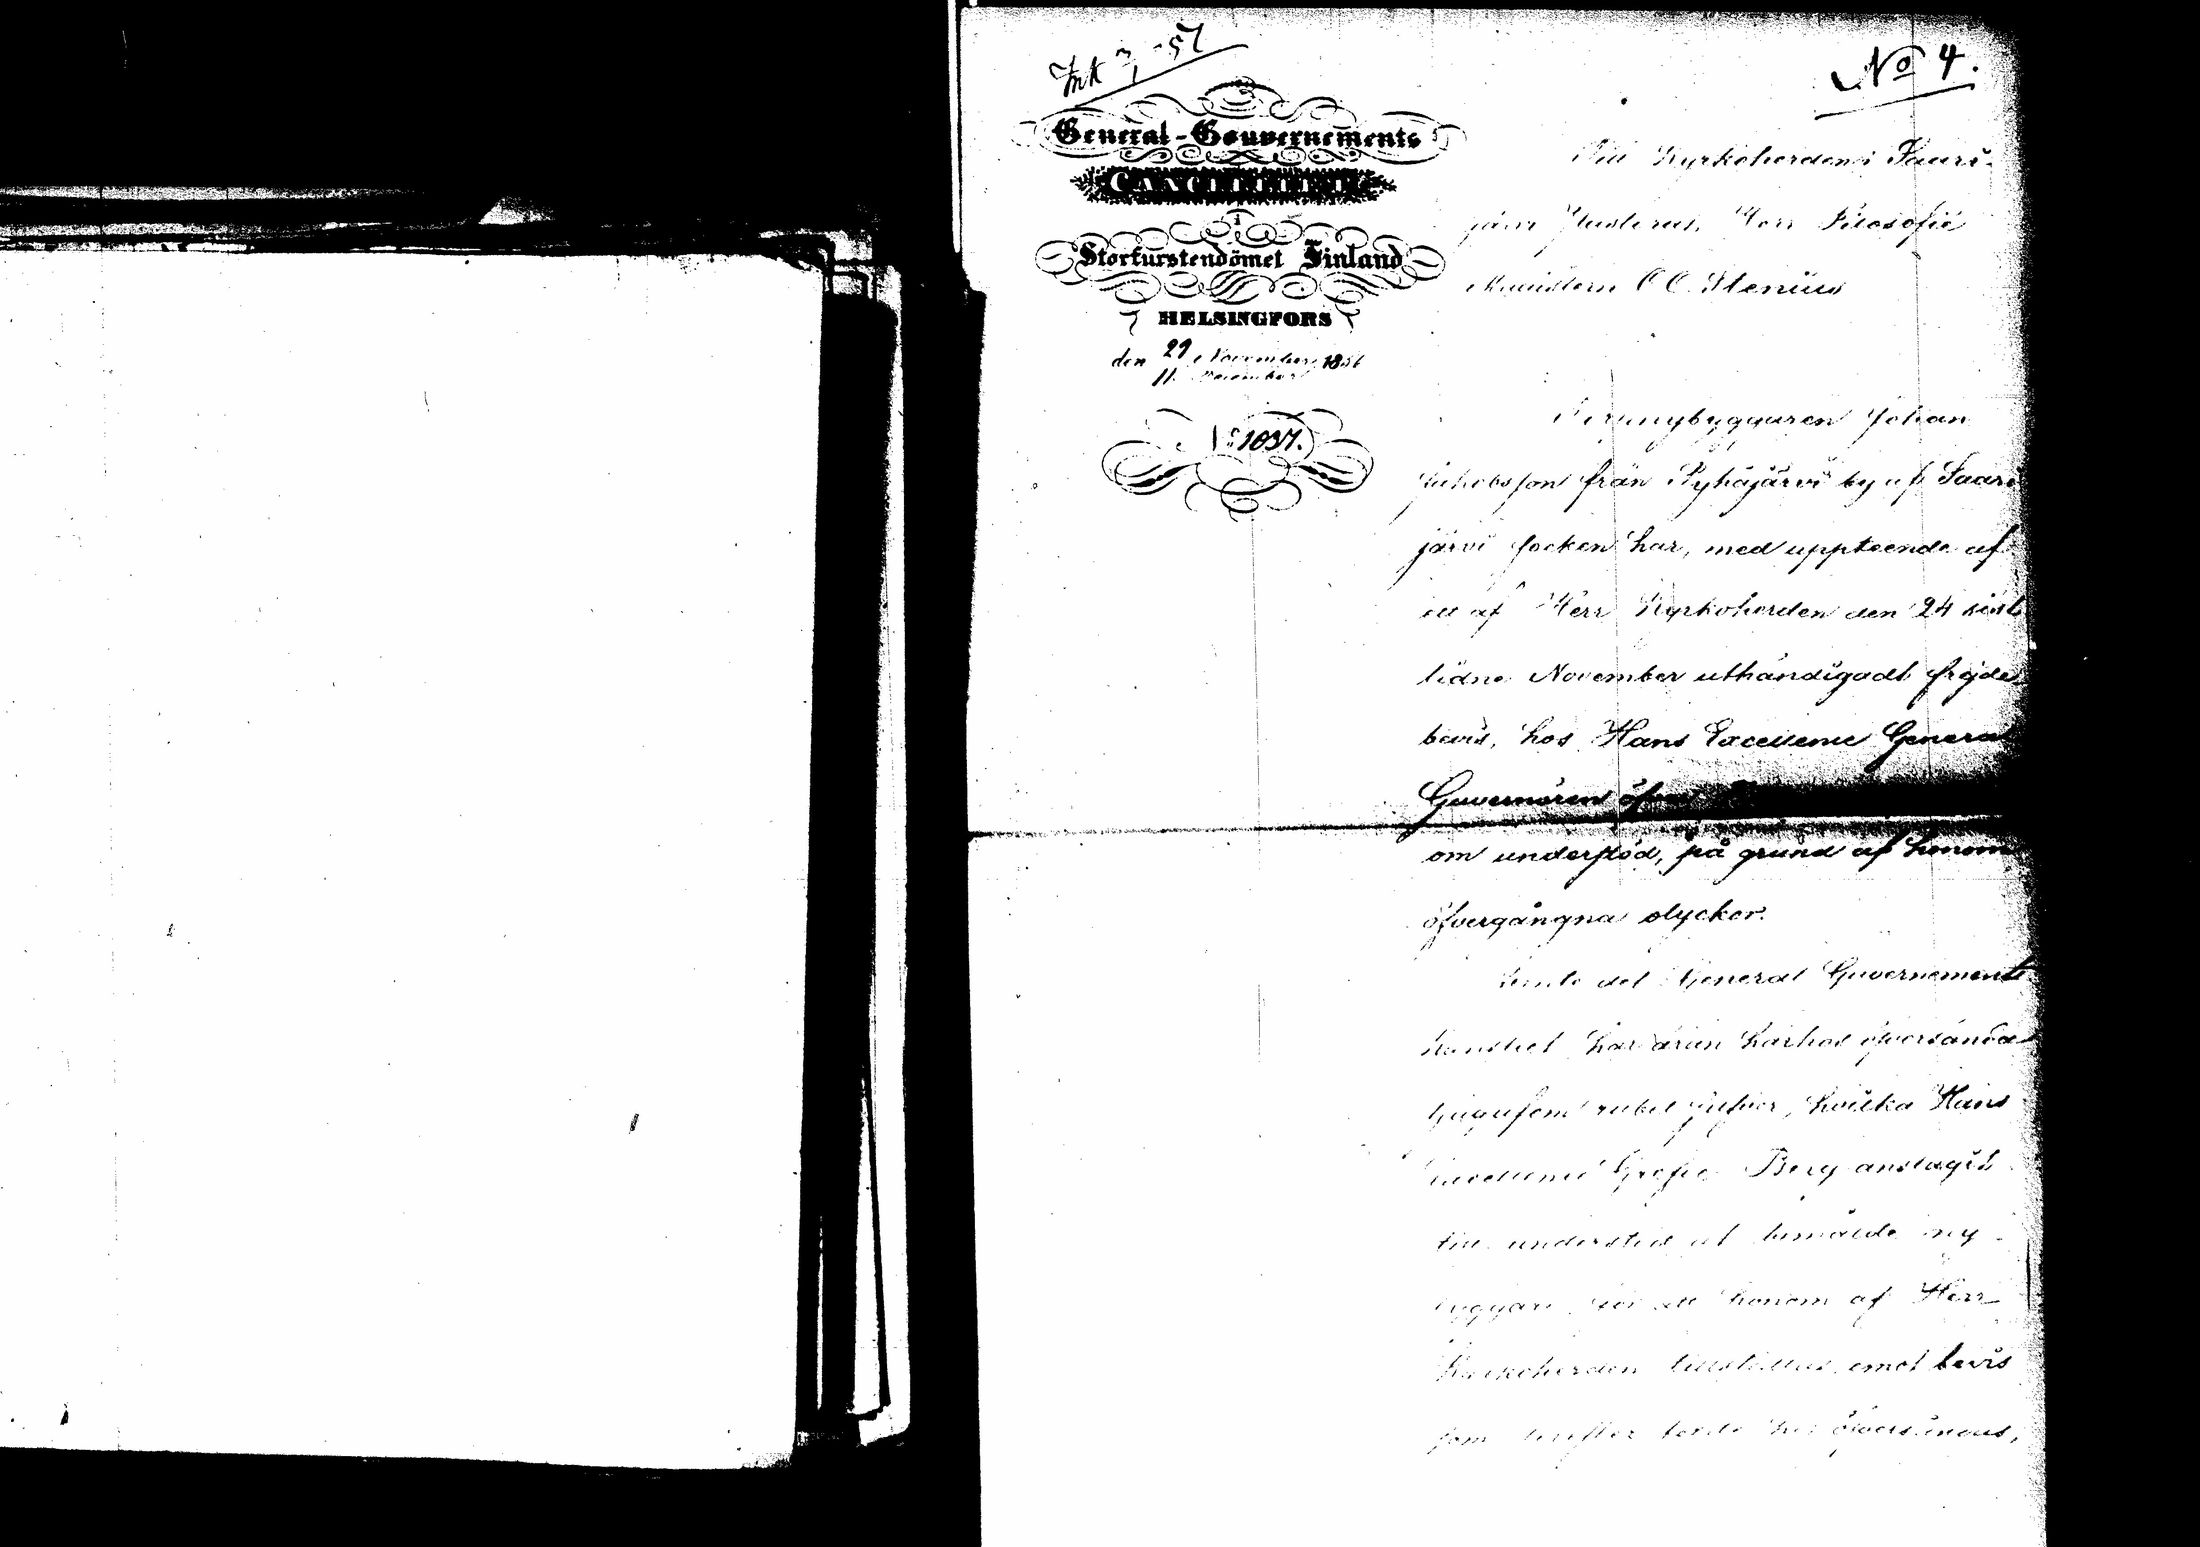 Ink 3/1 -57
No 4.
General-Gouvernements
CANCELLIET
i
Storfurstendömet Finland
HELSINGFORS
den 29 November 1856
11 December
No 1037.
Till Kyrkoherden i Saari-
järvi Pastorat, Herr Filosofie
Magistern C C Stenius
Kronynybyggaren Johan
Jakobsson från Pyhäjärvi by af Saari
järvi socken har, med uppteende af
ett af Herr Kyrkoherden den 24 sist
lidne November uthändigadt frejde
bevis, hos Hans Excellence General
Guvernören
om understöd, på grund af honom
öfvergångna olyckor.
det General Guvernements
Kansliet har äran härhos öfversända
tjugufem rubel silfver, hvilka Hans
Excellence Grefve Berg anslagit
till understöd åt bemälde ny-
byggare, för att honom af Herr
Kyrkoherden tillställas emot bevis
som derefter torde hit öfversändas,